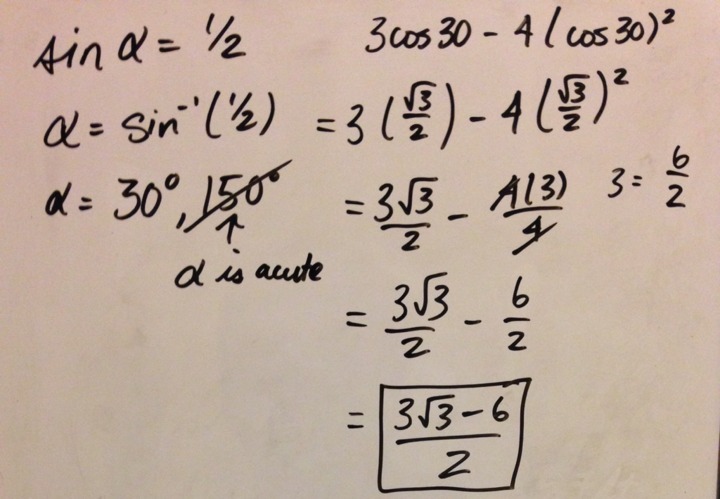 sin α = 1/2
α = sin⁻¹(1/2)
α = 30°, 150°
↑
α is acute
3cos30 - 4(cos30)²
= 3(√3/2) - 4(√3/2)²
= 3√3/2 - 4(3)/4
3 = 6/2
= 3√3/2 - 6/2
= 3√3-6/2